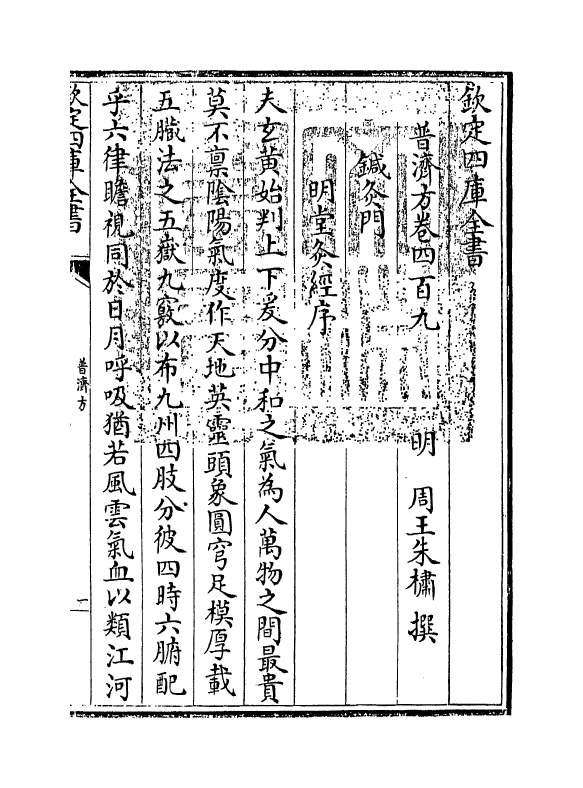 欽定四庫全書
普濟方卷四百九　明　周王朱橚　撰
鍼灸門
明堂灸經序
夫玄黃始判上下爰分中和之氣為人萬物之間最貴
莫不禀陰陽氣度作天地英靈頭象圓穹足模厚載
五臓法之五嶽九竅以布九州四肢分彼四時六腑配
乎六律瞻視同於日月呼吸猶若風雲氣血以類江河
欽定四庫全書
普濟方
一